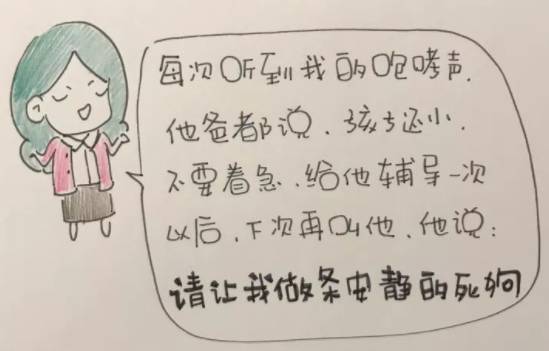 每次听到我的咆哮声,
他爸都说、孩子还小,
不要着急、给他辅导一次
以后、下次再叫他、他说:
请让我做条安静的死狗